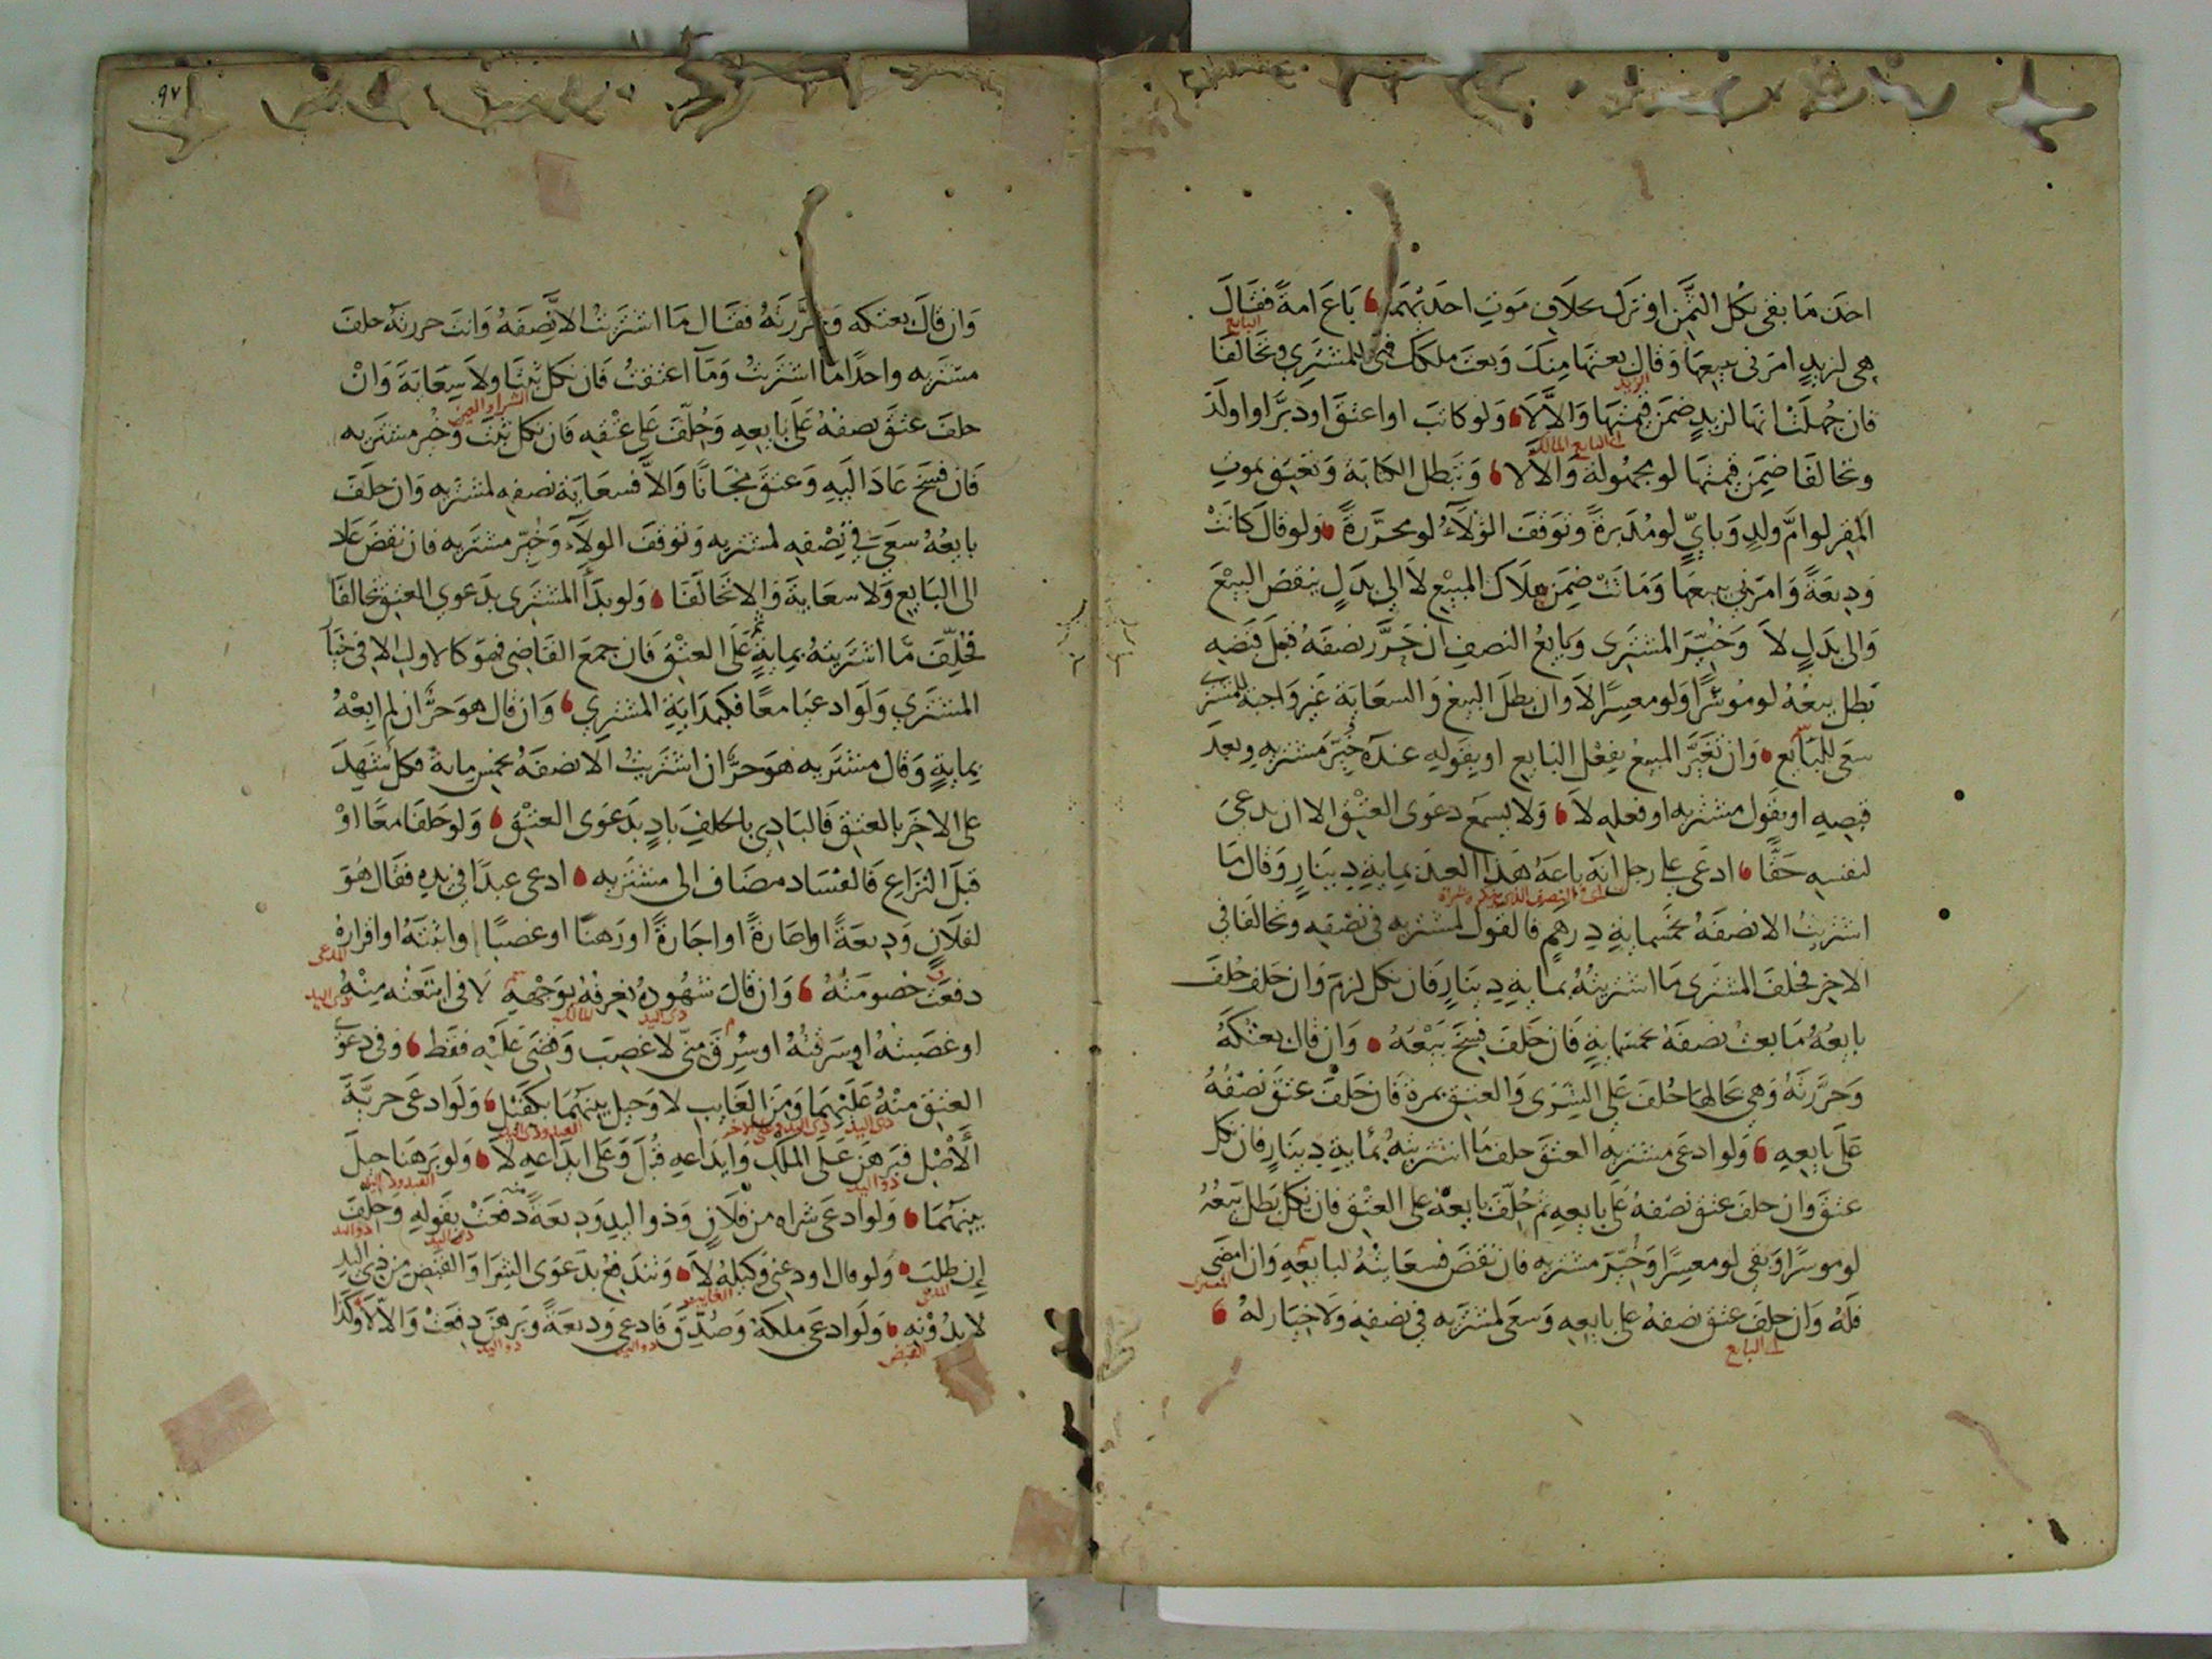 اخذ ما بقى بكل الثمن او ترك بخلاف موت احدهما باع امة فقال
هى لزيد امرنى ببيعها وقال بعتها منك وبعت ملكك فهى للمشترى وتحالفا
البايع
فان جهلت انها لزيد ضمن قيمتها والا لا ولو كاتب او اعتق او دبر او اولد
وتحالفا ضمن قيمتها لو مجهولة والا لا وتبطل الكتابة وتعتق بموت
المقر لو ام ولد وبايٍّ لو مدبرة وتوقف الولاء لو محررة ولو قال كانت
وديعة وامرنى ببيعها وماتت ضمن هلاك المبيع لا الى بدل ينقض البيع
والى بدل لا وخير المشترى وبايع النصف ان حرر نصفه قبل قبضه
بطل بيعه لو موسرا ولو معسرا لا وان بطل البيع والسعاية غير واجبة للمشترى
سعى للبايع وان تغير المبيع بفعل البايع او بقوله عنده خير مشتريه وبعد
قبضه او بقول مشتريه او فعله لا ولا يسمع دعوى العتق الا ان يدعى
لنفسه حقا ادعى على رجل انه باعه هذا العبد بماية دينار وقال ما
اشتريت الا نصفه بخمسماية درهم فالقول لمشتريه فى نصفه وتحالفا فى
الاخر فحلف المشترى ما اشتريته بماية دينار فان نكل لزم وان حلف حلف
بايعه ما بعت نصفه بخمسماية فان حلف فسخ بيعه وان قال بعتكه
وحررته وهى بحالها حلف على الشرى والعتق بمرة فان حلف عتق نصفه
على بايعه ولو ادعى مشتريه العتق حلف ما اشتريته بماية دينار فان نكل
عتق وان حلف عتق نصفه على بايعه ثم حلف بايعه على العتق فان نكل بطل بيعه
لو موسرا وبقى لو معسرا وخير مشتريه فان نقض فسعايته لبايعه وان امضى
فله وان حلف عتق نصفه على بايعه وسعى لمشتريه فى نصفه ولا خيار له
البايع
٩٧
وان قال بعتكه وحررته فقال ما اشتريت الا نصفه وانت حررته حلف
مشتريه واحدا ما اشتريت وما اعتقت فان نكل ثبتا ولا سعاية وان
حلف عتق نصفه على بايعه وحلف على عتقه فان نكل ثبت وخير مشتريه
فان فسخ عاد اليه وعتق مجانا والا فسعاية نصفه لمشتريه وان حلف
بايعه سعى فى نصفه لمشتريه وتوقف الولاء وخير مشتريه فان نقض عاد
الى البايع ولا سعاية والا تحالفا ولو بدأ المشترى بدعوى العتق تحالفا
فحلف ما اشتريته بماية ثم على العتق فان جمع القاضى فهو كالاول الا فى خيار
المشترى ولو ادعيا معا فكبداية المشترى وان قال هو حر ان لم ابعه
بماية وقال مشتريه هو حر ان اشتريت الا نصفه بخمس ماية فكل شهد
على الاخر بالعتق فالبادى بالحلف باد بدعوى العتق ولو حلفا معا او
قبل النزاع فالفساد مضاف الى مشتريه ادعى عبدا فى يده فقال هو
لفلان وديعة او اعارة او اجارة او رهنا او غصبا واثبته او اقراره
المدعى
دفعت خصومته وان قال شهوده نعرفه بوجهه لا فى ابتعته منه
ذى اليد
او غصبته او سرقته او سرق منى لا غصب وقضى عليه فقط وفى دعوى
العتق منه عليهما ومن الغايب لا وحيل بينهما بكفيل ولو ادعى حرية
الاصل فبرهن على الملك وايداعه قبل وعلى ايداعه لا ولو برهنا حيل
بينهما ولو ادعى شراه من فلان وذو اليد وديعة منه دفعت بقوله وحلف
ان طلب ولو قال اودعنى وكيله لا وتندفع بدعوى الشرا والقبض من ذى اليد
لا بدونه ولو ادعى ملكه وصدق فادعى وديعة وبرهن دفعت والا لا وكذا
القبض ذو اليد ذو اليد